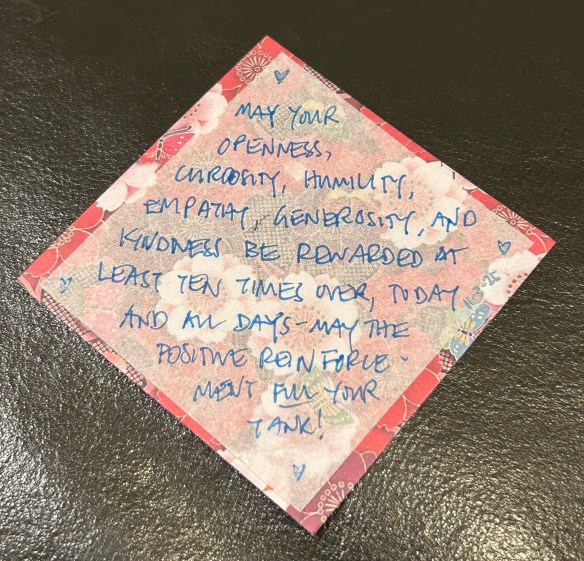 MAY YOUR
OPENNESS,
CURIOSITY, HUMILITY,
EMPATHY, GENEROSITY, AND
KINDNESS BE REWARDED AT
LEAST TEN TIMES OVER, TODAY
AND ALL DAYS - MAY THE
POSITIVE REINFORCE-
MENT FILL YOUR
TANK!
1-3-25